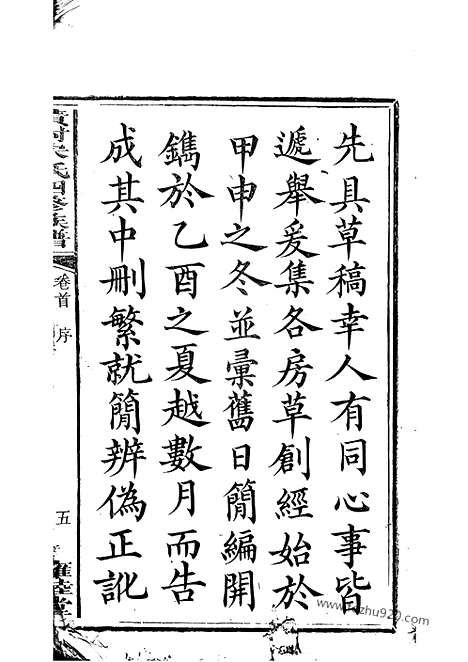 先具草稿幸人有同心事皆
遞舉爰集各房草創經始於
甲申之冬並彙舊日簡編開
鐫於乙酉之夏越數月而告
成其中刪繁就簡辨偽正訛
氏四修族譜
卷首 序
五
堂